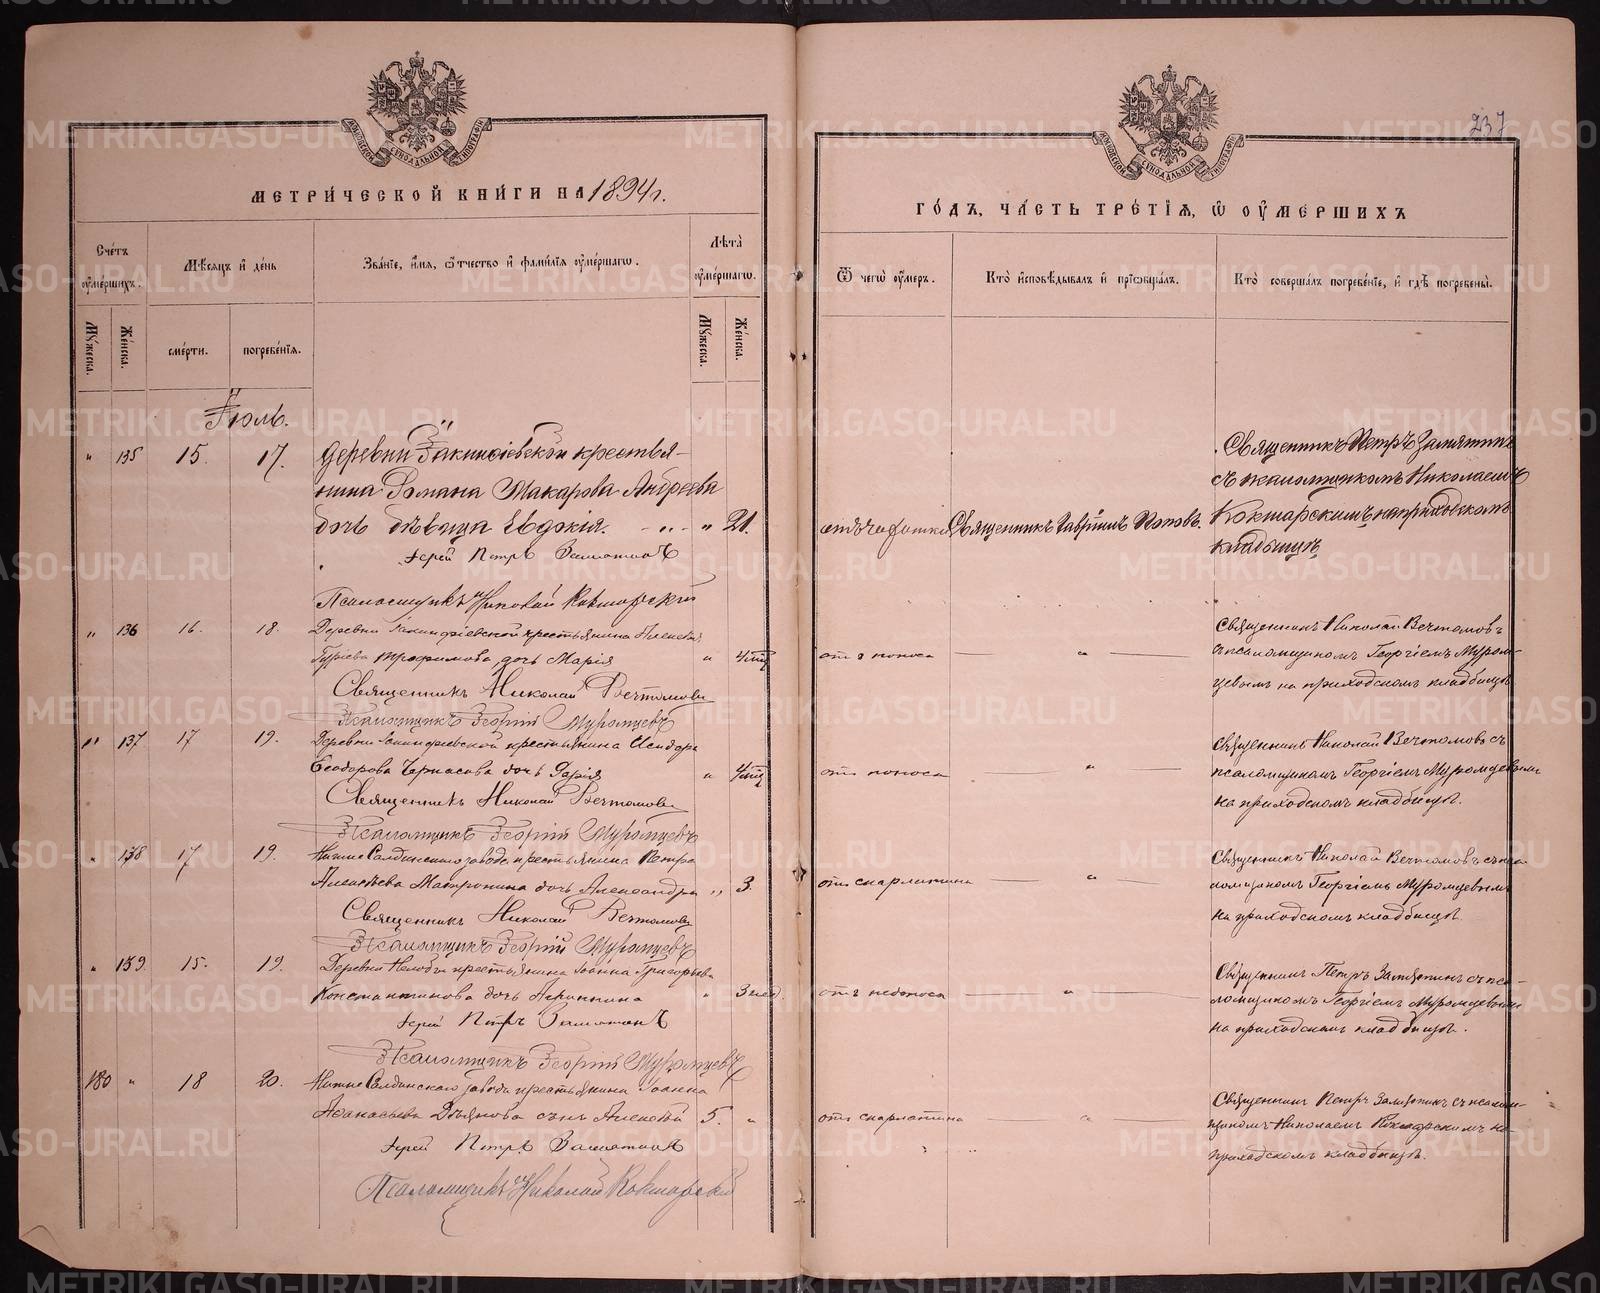 237
МОСКОВСКОЙ СѴНОДАЛЬНОЙ ТИПОГРАФІИ
МОСКОВСКОЙ СѴНОДАЛЬНОЙ ТИПОГРАФІИ
МЕТРИЧЕСКОЙ КНИГИ НА 1894 г.
ГОДЪ, ЧАСТЬ ТРЕТІЯ, Ѡ ОУМЕРШИХЪ
Счетъ оумершихъ.
Мѣсяцъ и день
Званіе, имя, ѿчество и фамилія оумершагѡ.
Лѣта оумершагѡ.
Ѿ чегѡ оумеръ.
Кто исповѣдывалъ и пріѡбщалъ.
Кто совершалъ погребеніе, и гдѣ погребены.
Мужеска. Женска. смерти. погребенія. Мужеска. Женска.
Іюль.
" 135 15. 17. Деревни Іакинѳіевской крестья-
нина Романа Макарова Андреева
дочь дѣвица Евдокія. " 21. отъ чахотки Священникъ Гавріилъ Поповъ.
Священникъ Петръ Замятинъ
съ псаломщикомъ Николаемъ
Кокшарскимъ на приходскомъ
кладбищѣ
Іерей Петръ Замятинъ
Псаломщикъ Николай Кокшарскій
" 136 16. 18. Деревни Іакинѳіевской крестьянина Алексѣя
Гуріева Трофимова дочь Марія " 4 мц отъ поноса "
Священникъ Николай Вечтомовъ
съ псаломщикомъ Георгіемъ Муром-
цевымъ на приходскомъ кладбищѣ
Священникъ Николай Вечтомовъ
Псаломщикъ Георгій Муромцевъ
" 137 17 19. Деревни Іакинѳіевской крестьянина Исидора
Ѳеодорова Черкасова дочь Дарія " 4 мц отъ поноса "
Священникъ Николай Вечтомовъ съ
псаломщикомъ Георгіемъ Муромцевымъ
на приходскомъ кладбищѣ.
Священникъ Николай Вечтомовъ
Псаломщикъ Георгій Муромцевъ
" 138 17 19. Нижне Салдинскаго завода крестьянина Петра
Алексѣева Матронина дочь Александра " 3 отъ скарлатина "
Священникъ Николай Вечтомовъ съ пса
ломщикомъ Георгіемъ Муромцевымъ
на приходскомъ кладбищѣ.
Священникъ Николай Вечтомовъ
Псаломщикъ Георгій Муромцевъ
" 139. 15. 19. Деревни Нелобы крестьянина Іоанна Григорьева
Константинова дочь Агриппина " 3 нед. отъ недоноса "
Священникъ Петръ Замятинъ съ пса-
ломщикомъ Георгіемъ Муромцевымъ
на приходскомъ кладбищѣ.
Іерей Петръ Замятинъ
Псаломщикъ Георгій Муромцевъ
180 " 18 20. Нижне Салдинскаго завода крестьянина Іоанна
Аѳанасьева Дѣянова сынъ Алексѣй 5. " отъ скарлатина "
Священникъ Петръ Замятинъ съ псалом-
щикомъ Николаемъ Кокшарскимъ на
приходскомъ кладбищѣ.
Іерей Петръ Замятинъ
Псаломщикъ Николай Кокшарскій
METRIKI.GASO-URAL.RU